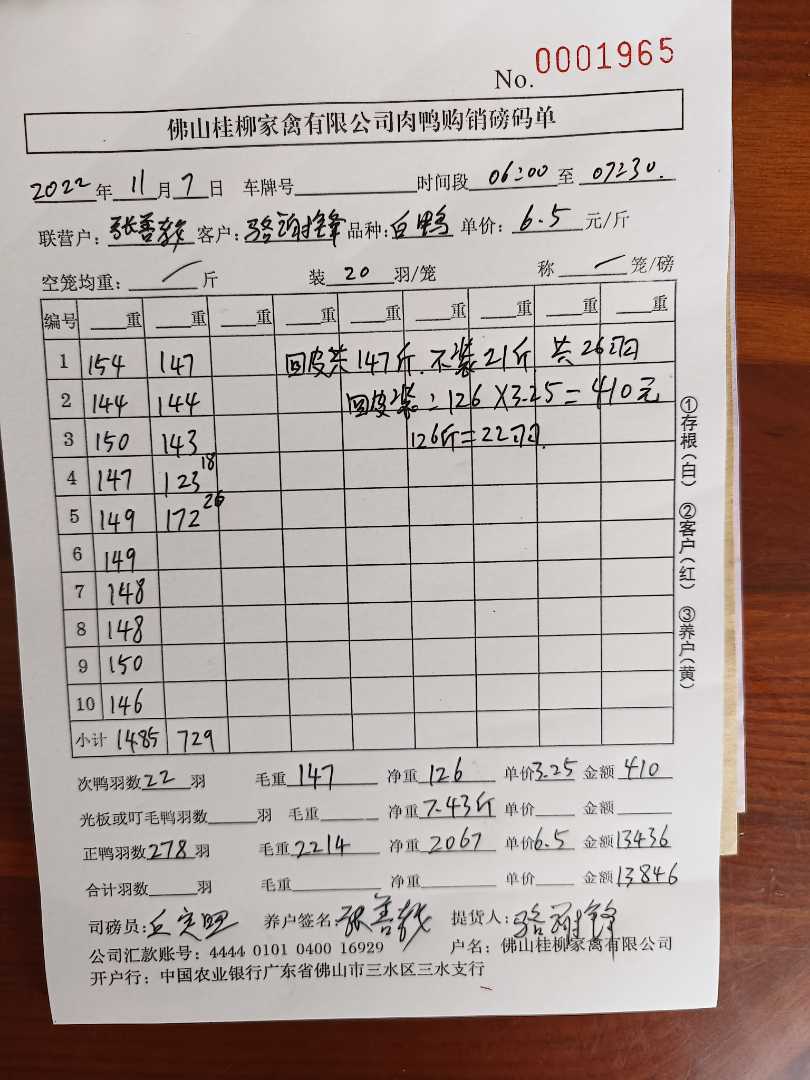 No. 0001965
佛山桂柳家禽有限公司肉鸭购销磅码单
2022年11月7日 车牌号 时间段 06:00至 07:30.
联营户: 张善 客户: 骆 锋 品种: 白鸭 单价: 6.5 元/斤
空笼均重: / 斤 装 20 羽/笼 称 / 笼/磅
编号 重 重 重 重 重 重 重 重 重
1 154 147 回皮共147斤. 不装21斤. 共26羽
2 144 144 回皮装: 126×3.25=410元
3 150 143 126斤=22羽.
4 147 123 18
5 149 172 26
6 149
7 148
8 148
9 150
10 146
小计 1485 729
次鸭羽数22羽 毛重147 净重126 单价3.25 金额410
光板或叮毛鸭羽数 羽 毛重 净重7.43斤 单价 金额
正鸭羽数278羽 毛重2214 净重2067 单价6.5 金额13436
合计羽数 羽 毛重 净重 单价 金额13846
司磅员: 养户签名: 张善 提货人: 骆 锋
公司汇款账号: 4444 0101 0400 16929 户名: 佛山桂柳家禽有限公司
开户行: 中国农业银行广东省佛山市三水区三水支行
①存根(白) ②客户(红) ③养户(黄)